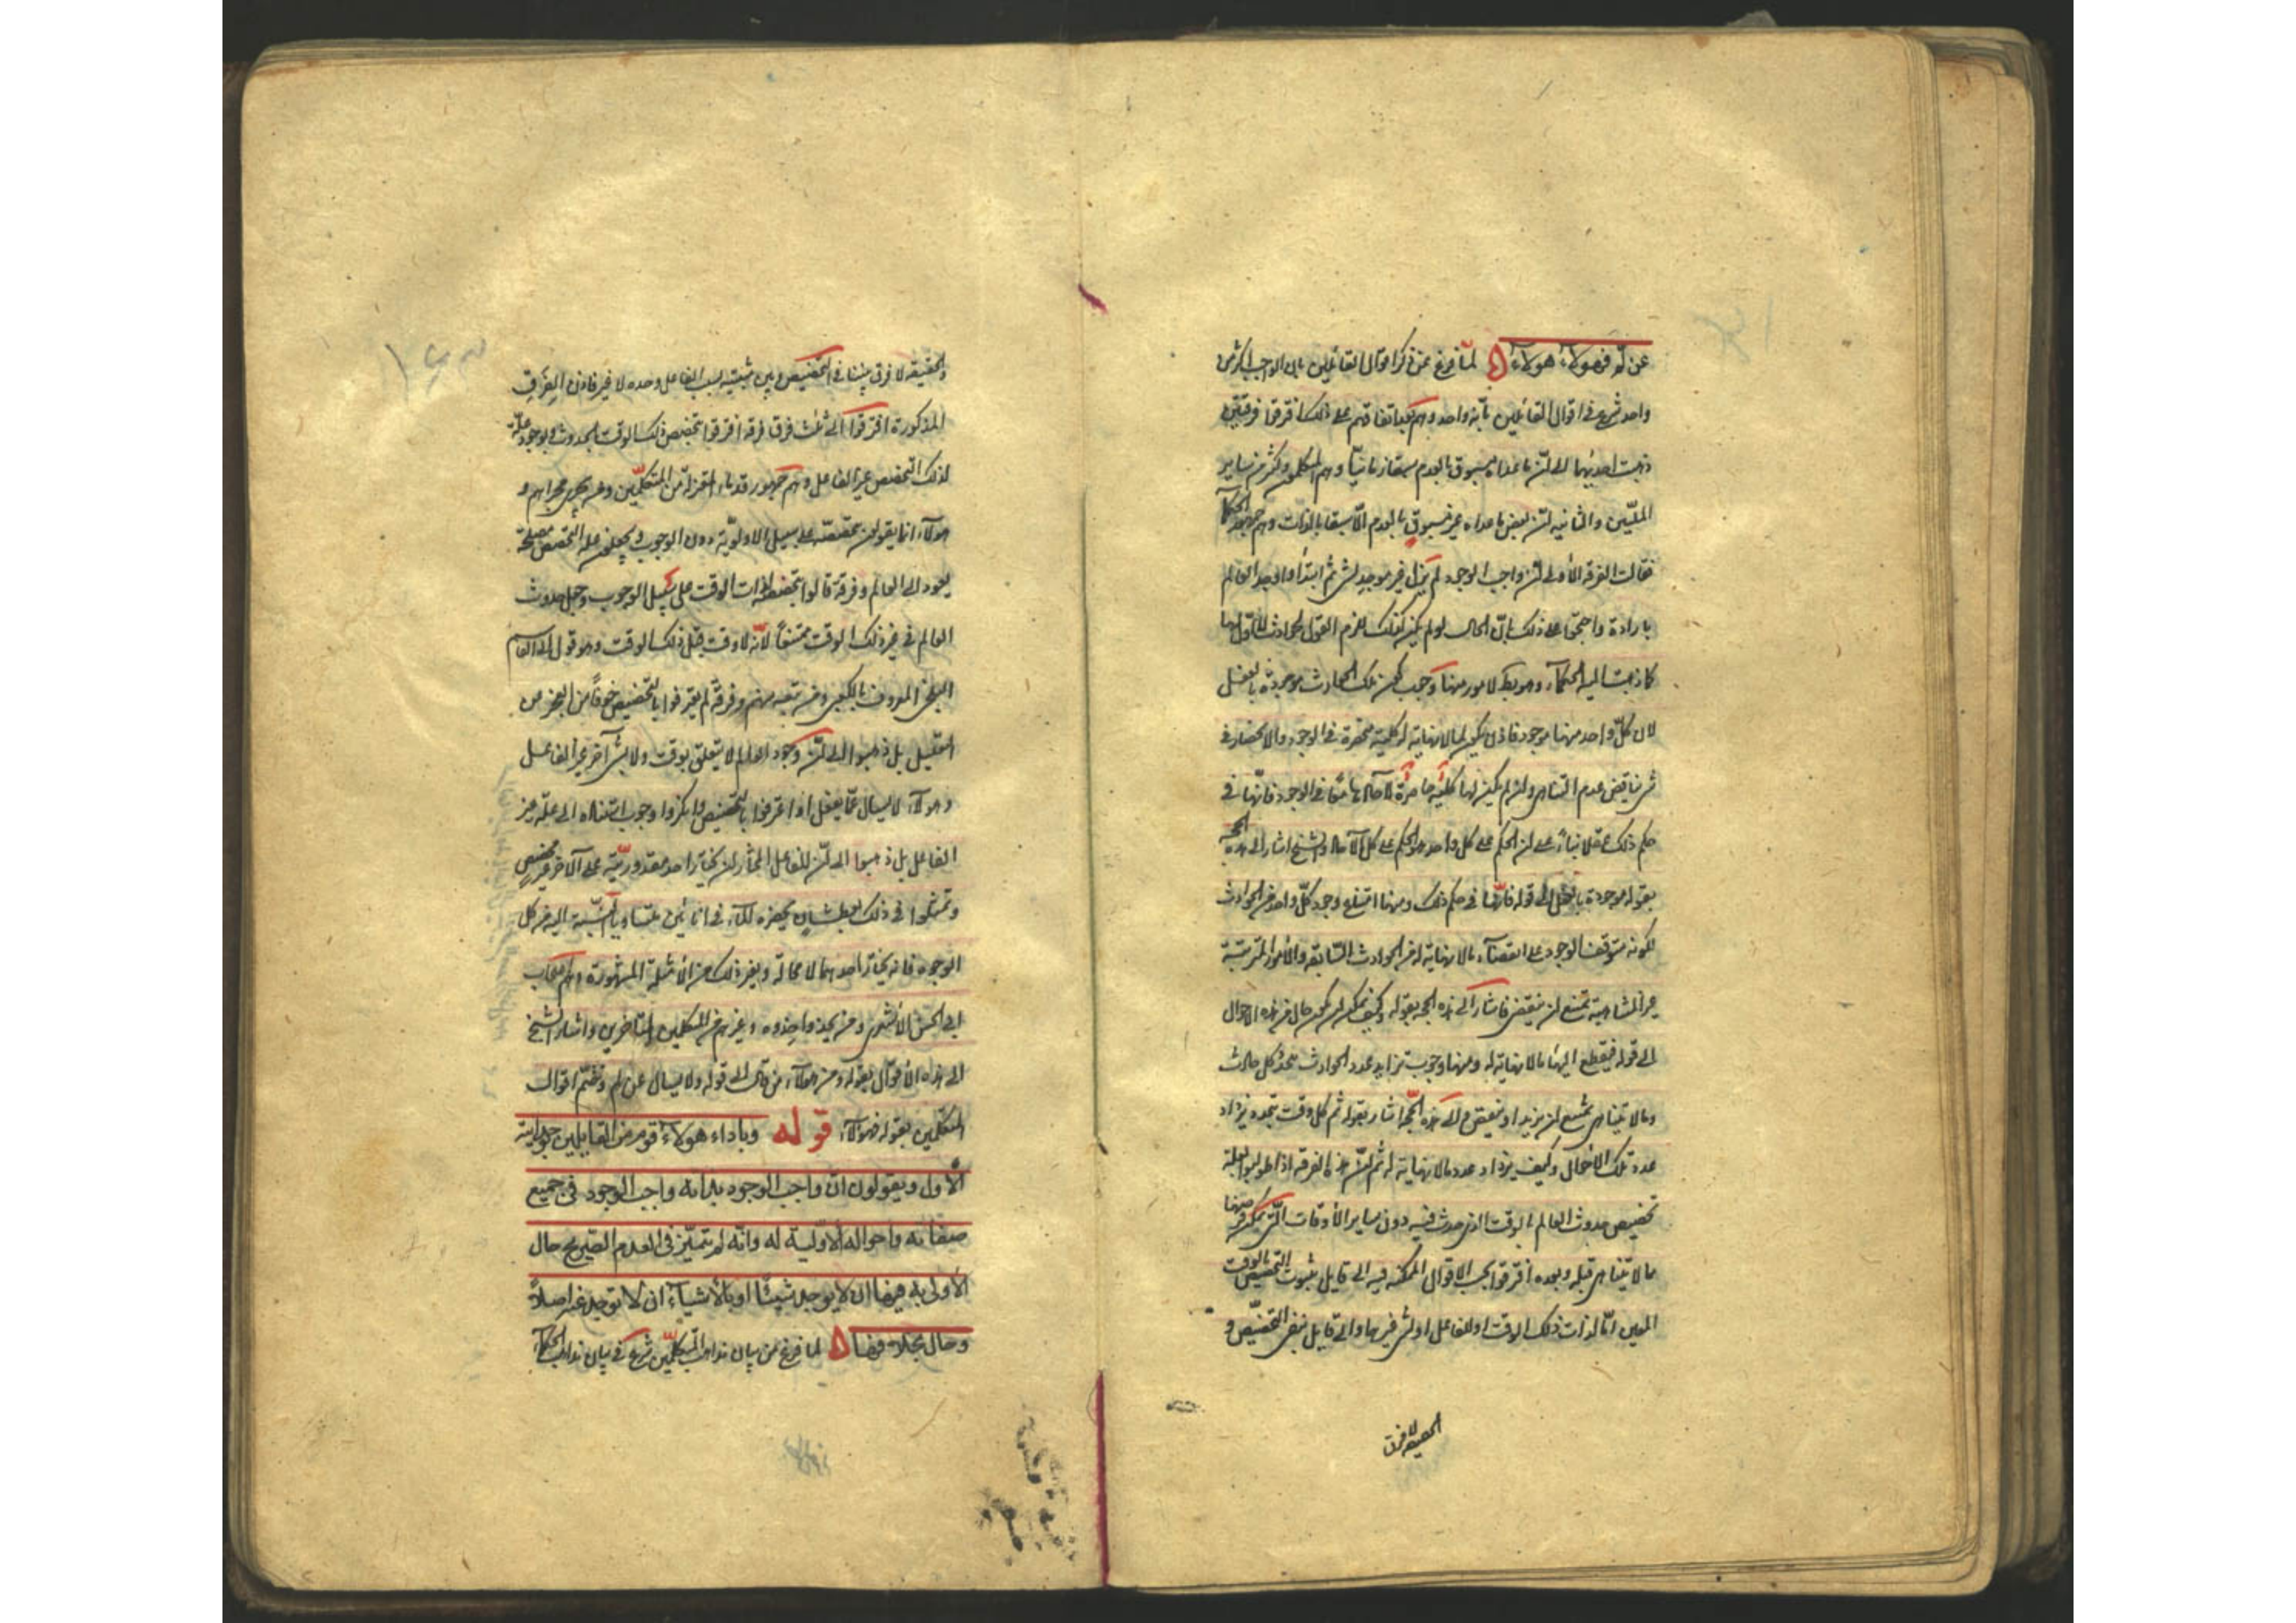 عن لم فهولاء هولاء لما فرغ عن ذكر اقوال القائلين بان الواجب اكثر من
واحد شرع في اقوال القائلين بانه واحد وهم بعد اتفاقهم على ذلك افترقوا فرقتين
ذهبت احديهما الى ان ما عداه مسبوق بالعدم سبقا زمانيا وهم المتكلمون وكثير من ساير
المليين والثانية ان بعض ما عداه غير مسبوق بالعدم الا سبقا بالذات وهم جمهور الحكما
فقالت الفرقة الاولى ان واجب الوجود لم يزل غير موجد لشئ ثم ابتدا واوجد العالم
بارادة واحتجوا على ذلك بان الحال لو لم يكن كذلك للزم القول بحوادث لا اول لها
كما ذهبت اليه الحكماء وهو بط لامور منها وجب كون تلك الحوادث موجودة بالفعل
لان كل واحد منها موجود فاذن يكون لما لا نهاية له كلية محصرة في الوجود والانحصار في
شئ يناقض عدم التناهي وان لم يكن لها كلية حاصرة لآحادها معا في الوجود فانها في
حكم ذلك عقلا بناء على ان الحكم على كل واحد هو الحكم على كل الآحاد والشيخ اشار الى هذه الحجة
بقوله موجودة بالفعل الى قوله فانها في حكم ذلك ومنها امتناع وجود كل واحد من الحوادث
لكونه متوقف الوجود على انقضاء ما لا نهاية له من الحوادث السابقة والامور المترتبة
غير المتناهية تمتنع ان ينقضي فاشار الى هذه الحجة بقوله وكيف يمكن ان يكون حال من هذه الاحوال
الى قوله فيقطع اليها ما لا نهاية له ومنها وجوب تزايد عدد الحوادث بتجدد كل حادث
وما لا يتناهى يمتنع ان يزيد او ينقص والى هذه الحجة اشار بقوله ثم كل وقت يتجدد يزداد
عدد تلك الاحوال وكيف يزداد عدد ما لا نهاية له ثم ان هذه الفرقة اذا طولبوا بعلة
تخصيص حدوث العالم بالوقت الذي حدث فيه دون ساير الاوقات التي يمكن فرضها
ما لا يتناهى قبله وبعده افترقوا بحسب الاقوال الممكنة فيه الى قايل بثبوت التخصيص بالوقت
المعين اما لذات ذلك الوقت او للفاعل او لشئ غيرهما والى قايل بنفي التخصيص و
الحقيقة لا فرق
والحقيقة لا فرق بيننا في التخصيص وبين مثبتيه بسبب الفاعل وحده لا غير فاذن الفرق
المذكورة افترقوا الى ثلث فرق فرقة افترقوا بتخصيص ذلك الوقت بالحدوث وبوجود علة
لذلك التخصيص غير الفاعل وهم جمهور قدماء المعتزلة من المتكلمين ومن يجري مجراهم و
هولاء انما يقولون بتخصصه على سبيل الاولوية دون الوجوب ويجعلون علة التخصيص مصلحة
يعود الى العالم وفرقة قالوا بتخصصه لذات الوقت على سبيل الوجوب وجعل حدوث
العالم في غير ذلك الوقت ممتنعا لانه لا وقت قبل ذلك الوقت وهو قول ابي القاسم
البلخي المعروف بالكعبي ومن تبعه منهم وفرقة لم يعترفوا بالتخصيص خوفا من العجز عن
التعليل بل ذهبوا الى ان وجود العالم لا يتعلق بوقت ولا بشئ آخر غير الفاعل
وهو لا يسال عما يفعل او اعترفوا بالتخصيص وانكروا وجوب استناده الى علة غير
الفاعل بل ذهبوا الى ان الفاعل المختار ان يختار احد مقدوريه على الآخر من غير مخصص
وتمثلوا في ذلك بعطشان يحضره الماء في انائين متساويا النسبة اليه من كل
الوجوه فانه يختار احدهما لا محالة وبغير ذلك من الامثلة المشهورة وهم اصحاب
ابي الحسن الاشعري ومن يحذو حذوه وغيرهم من المتكلمين المتاخرين واشار الشيخ
الى هذه الاقوال بقوله ومن هولاء من قال الى قوله ولا يسال عن لم وختم اقوال
المتكلمين بقوله فهولاء قوله وباداء هولاء قوم من القايلين بوحدانية
الاول ويقولون ان واجب الوجود بذاته واجب الوجود في جميع
صفاته واحواله الاولية له وانه لم يتميز في العدم الصريح حال
الاولى به فيها ان لا يوجد شيئا او بالاشياء ان لا توجد عنه اصلا
وحال بخلافها لما فرغ من بيان مذاهب المتكلمين شرع في بيان مذاهب الحكما